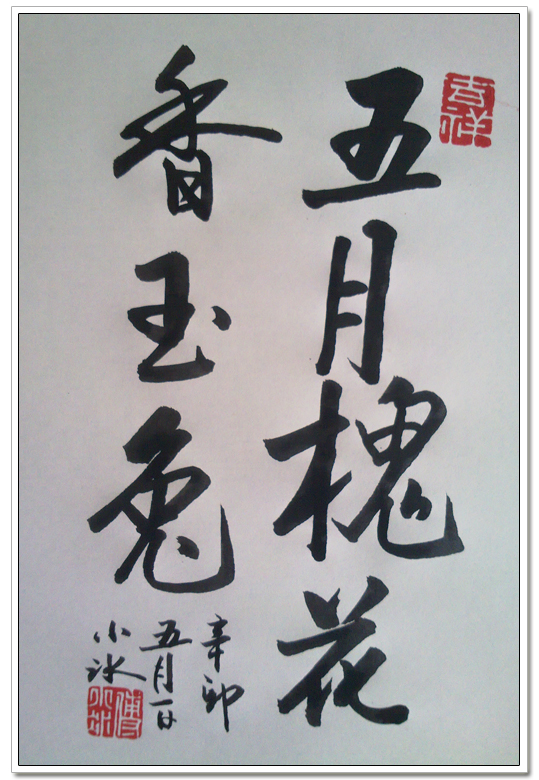 五月槐花
香玉兔
辛卯
五月一日
小冰